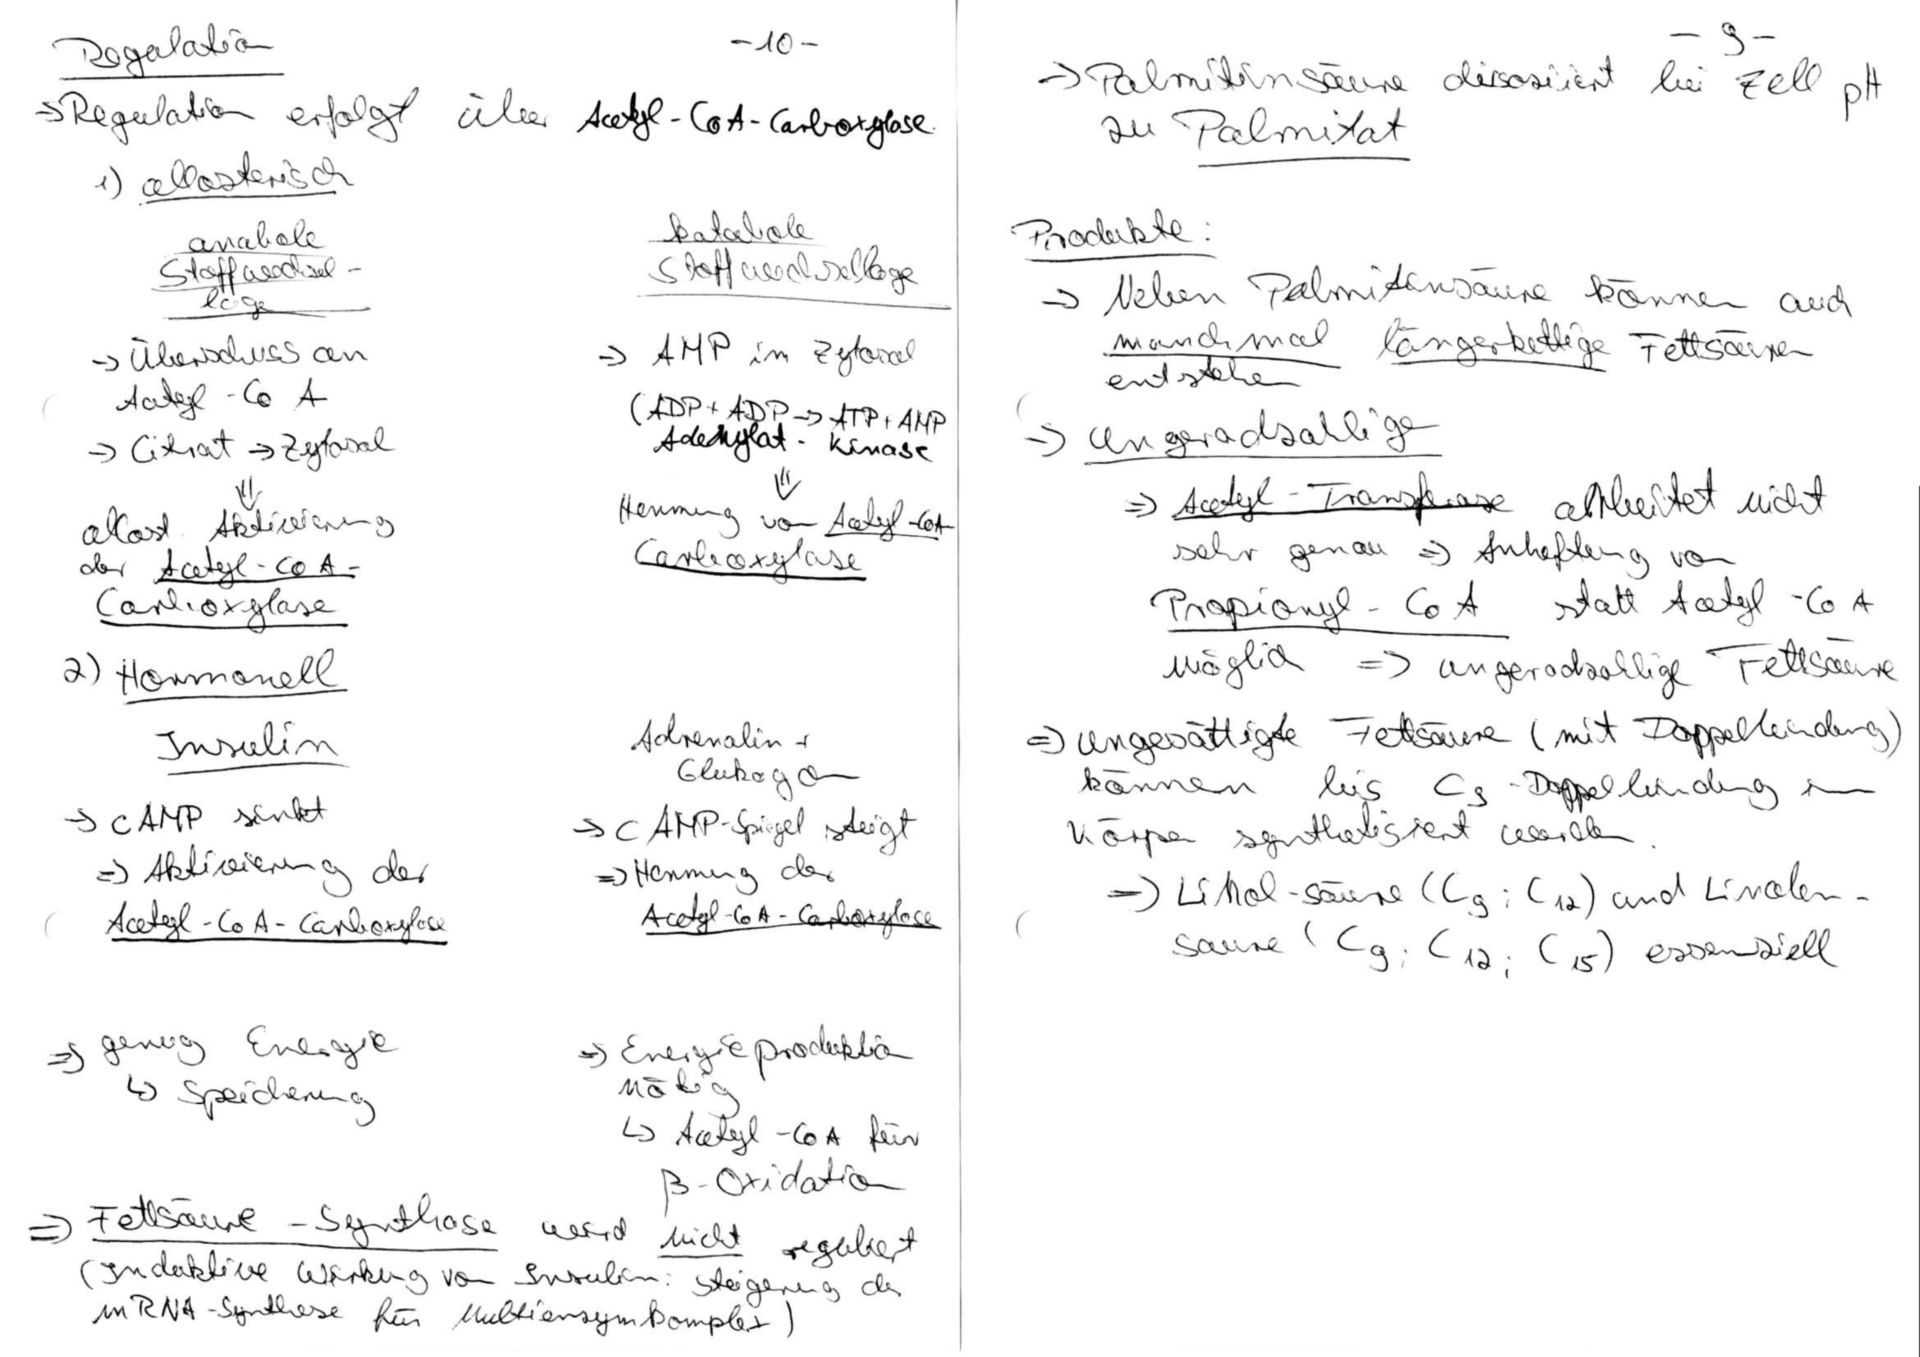 Regulation
-10-
→ Regulation erfolgt über Acetyl-CoA-Carboxylase.
1) allosterisch
anabole
Stoffwechsel-
lage
→ Überschuss an
Acetyl-CoA
→ Citrat → Zytosol
⇓
allost. Aktivierung
der Acetyl-CoA-
Carboxylase
katabole
Stoffwechsellage
→ AMP im Zytosol
(ADP + ADP → ATP + AMP
Adenylat-Kinase
⇓
Hemmung von Acetyl-CoA
Carboxylase
2) Hormonell
Insulin
→ cAMP sinkt
⇒ Aktivierung der
Acetyl-CoA-Carboxylase
Adrenalin +
Glukagon
→ cAMP-Spiegel steigt
⇒ Hemmung der
Acetyl-CoA-Carboxylase
⇒ genug Energie
↳ Speicherung
⇒ Energieproduktion
nötig
↳ Acetyl-CoA für
β-Oxidation
⇒ Fettsäure-Synthase wird nicht reguliert
(Induktive Wirkung von Insulin: Steigerung der
mRNA-Synthese für Multienzymkomplex)
-9-
→ Palmitinsäure dissoziiert bei Zell pH
zu Palmitat
Produkte:
→ Neben Palmitinsäure können auch
manchmal längerkettige Fettsäuren
entstehen
→ ungeradzahlige
⇒ Acetyl-Transferase arbeitet nicht
sehr genau ⇒ Anheftung von
Propionyl-CoA statt Acetyl-CoA
möglich ⇒ ungeradzahlige Fettsäure
⇒ ungesättigte Fettsäure (mit Doppelbindung)
können bis C9-Doppelbindung im
Körper synthetisiert werden.
⇒ Linol-säure (C9; C12) und Linolen-
säure (C9; C12; C15) essenziell